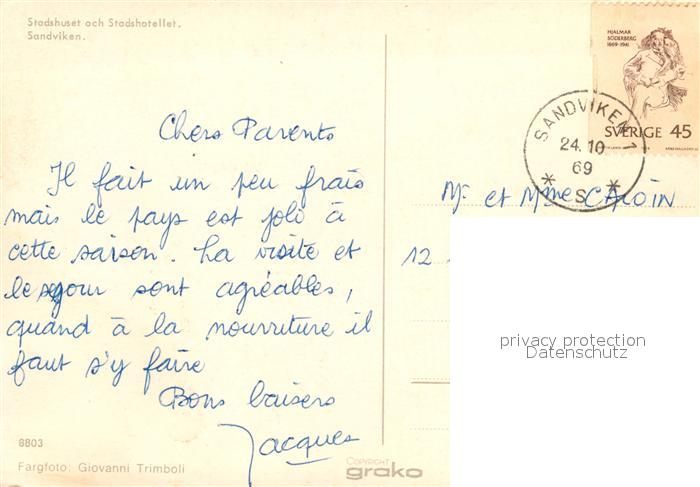 Stadshuset och Stadshotellet.
Sandviken.
HJALMAR
SÖDERBERG
1869-1941
SVERIGE 45
SANDVIKEN 1
24. 10
69
* S *
Chers Parents
Il fait un peu frais
mais le pays est joli à
cette saison. La visite et
le séjour sont agréables,
quand à la nourriture il
faut s'y faire
Bons baisers
Jacques
Mr et Mme CALOIN
12
privacy protection
Datenschutz
8803
Fargfoto: Giovanni Trimboli
COPYRIGHT
grako